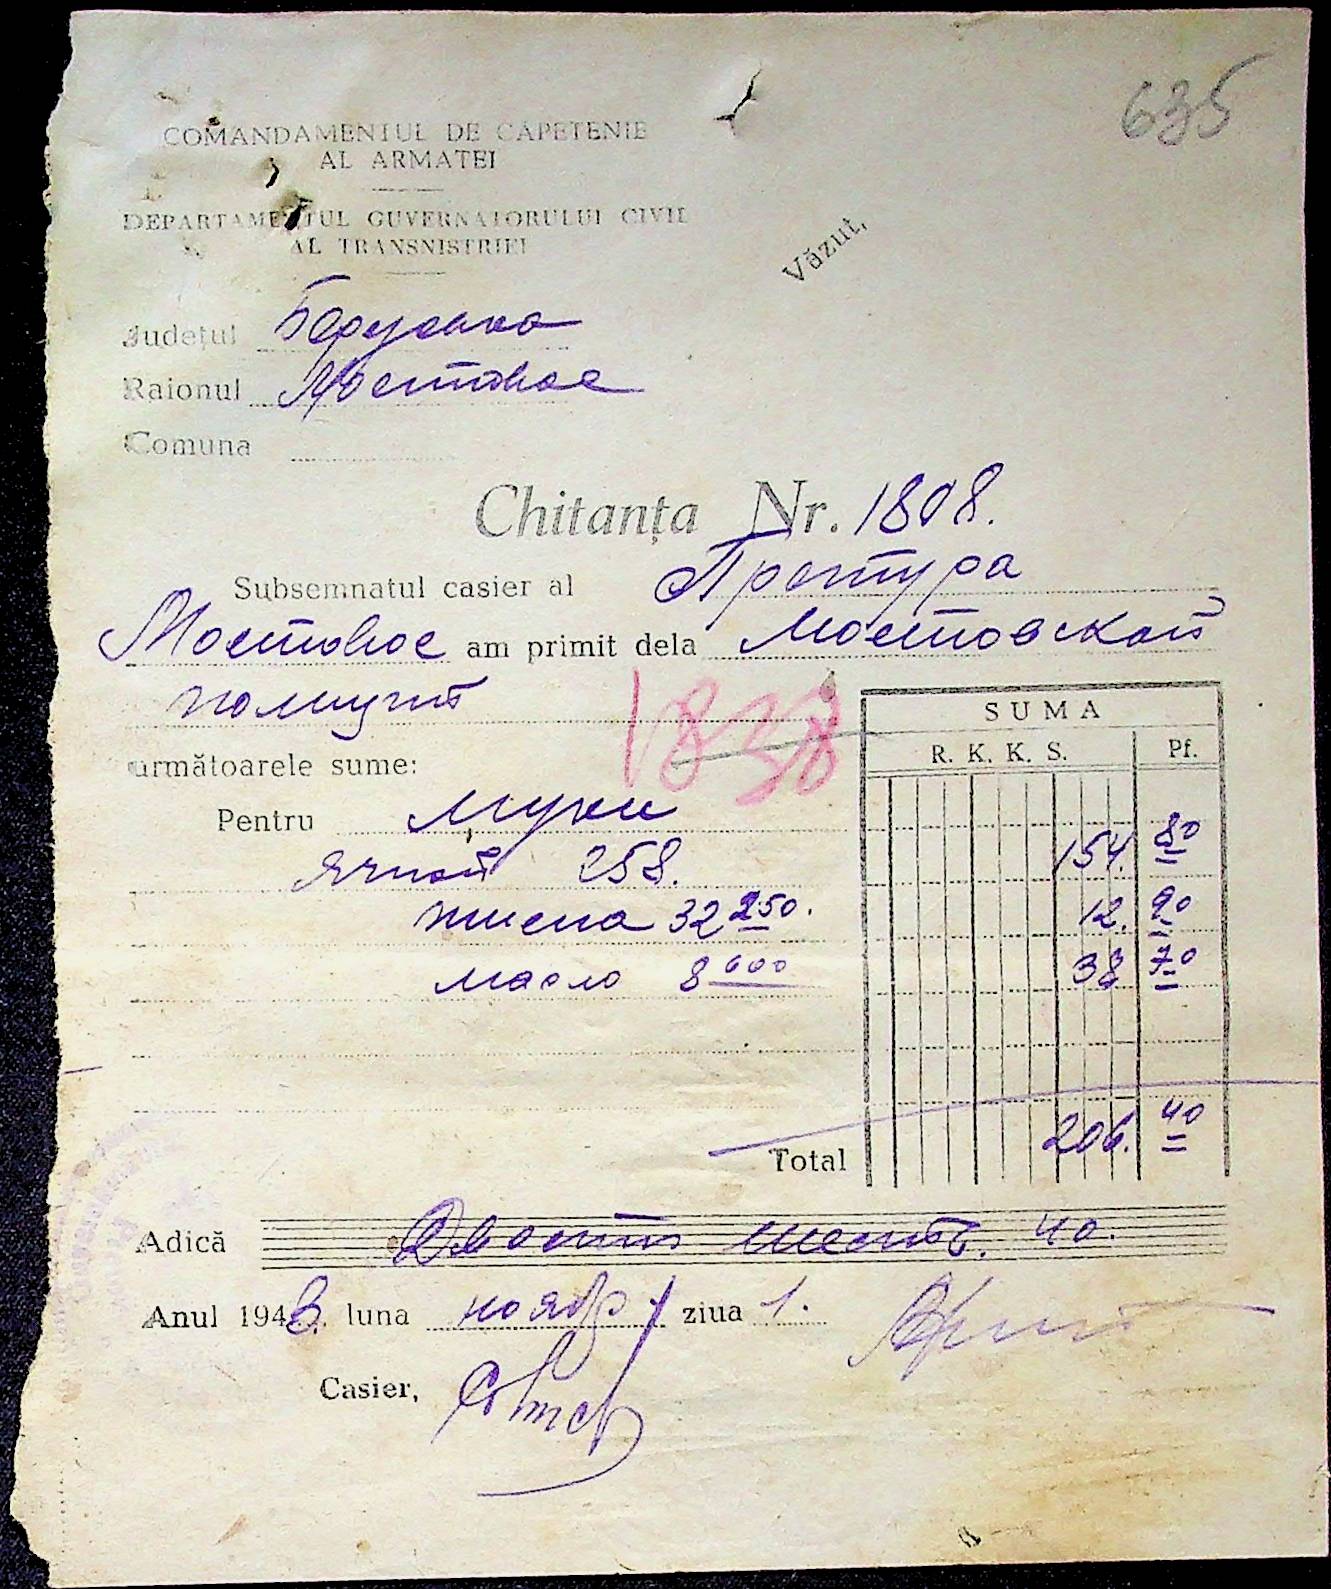 635
COMANDAMENTUL DE CAPETENIE
AL ARMATEI
DEPARTAMENTUL GUVERNATORULUI CIVIL
AL TRANSNISTRIEI
Văzut,
Județul
Raionul Мостовое
Comuna
Chitanța Nr. 1808.
Subsemnatul casier al Претура
Мостовое am primit dela Мостовской
1838
următoarele sume:
SUMA
R. K. K. S. Pf.
Pentru муки
ячной 258. 154. 80
пшена 32 250. 12. 90
масло 8 600 38 70
Total 206. 40
Adică Двести шесть. 40.
Anul 1943. luna ноябр. ziua 1.
Casier,